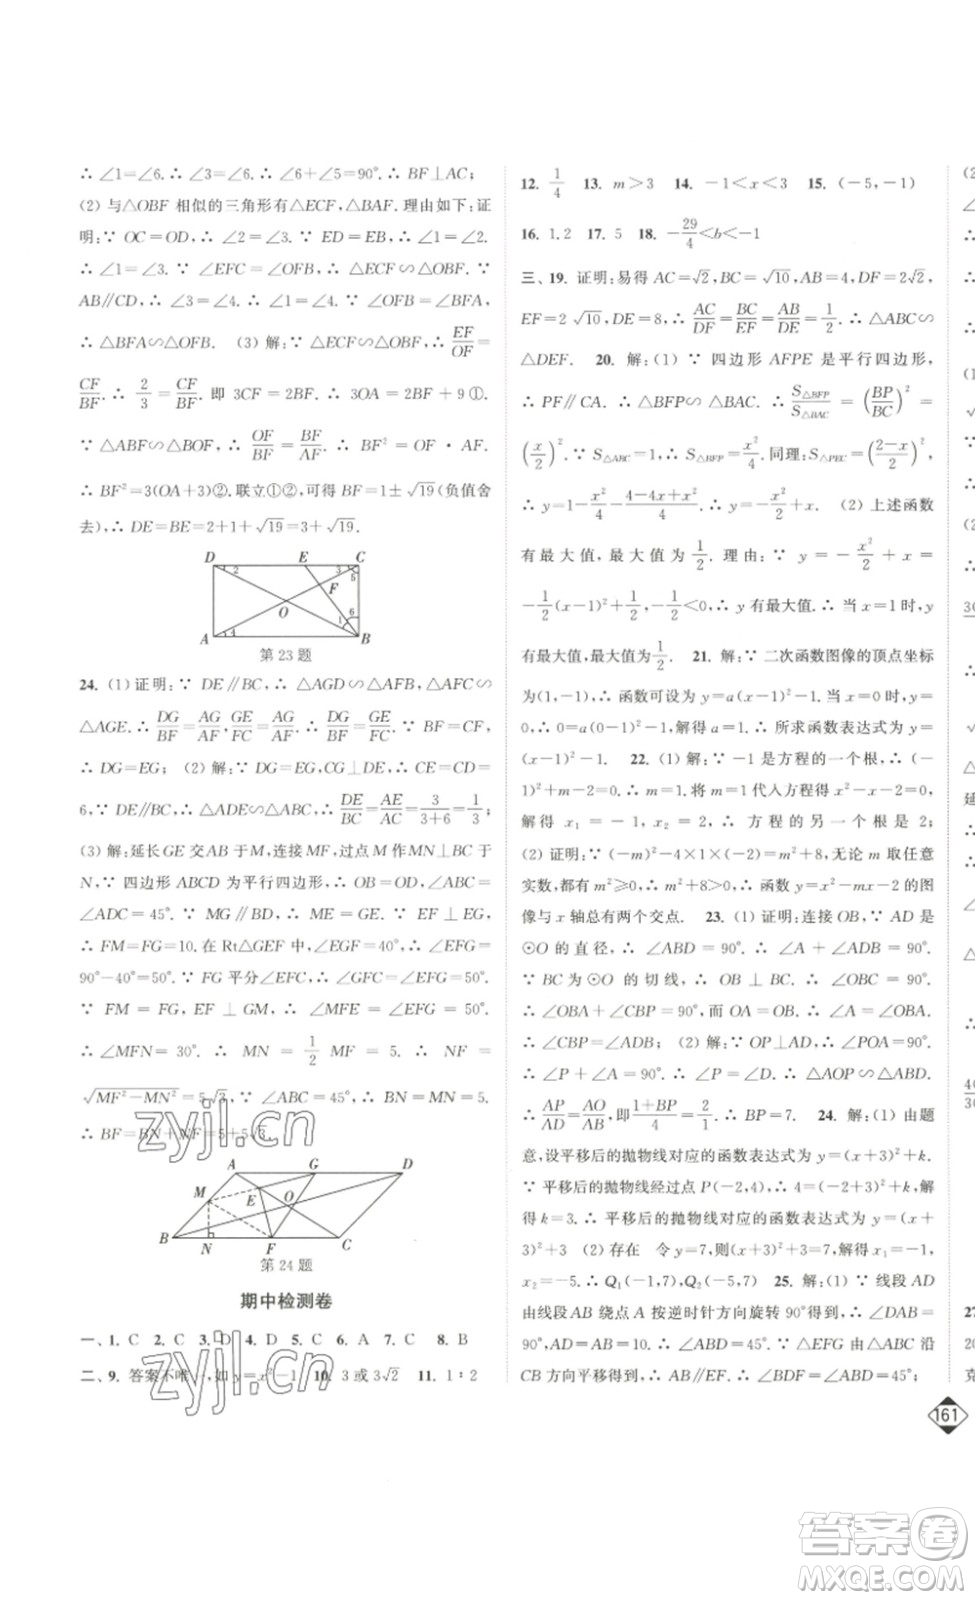 ∴ ∠1=∠6. ∴ ∠3=∠6. ∴ ∠6+∠5=90°. ∴ BF⊥AC;
(2) 与△OBF 相似的三角形有△ECF,△BAF. 理由如下:证
明:∵ OC=OD,∴ ∠2=∠3. ∵ ED=EB,∴ ∠1=∠2.
∴ ∠1=∠3. ∵ ∠EFC=∠OFB,∴ △ECF∽△OBF. ∵
AB∥CD,∴ ∠3=∠4. ∴ ∠1=∠4. ∵ ∠OFB=∠BFA,
∴ △BFA∽△OFB. (3) 解:∵ △ECF∽△OBF,∴ EF/OF=
CF/BF. ∴ 2/3=CF/BF. 即 3CF=2BF. ∴ 3OA=2BF+9 ①.
∵ △ABF∽△BOF,∴ OF/BF=BF/AF. ∴ BF²=OF·AF.
∴ BF²=3(OA+3)②. 联立①②,可得 BF=1±√19(负值舍
去),∴ DE=BE=2+1+√19=3+√19.
D E C
2 3 5
F
O
1 6
A 4 B
第 23 题
24. (1) 证明:∵ DE∥BC,∴ △AGD∽△AFB,△AFC∽
△AGE. ∴ DG/BF=AG/AF,GE/FC=AG/AF. ∴ DG/BF=GE/FC. ∵ BF=CF,
∴ DG=EG; (2) 解:∵ DG=EG,CG⊥DE,∴ CE=CD=
6,∵ DE∥BC,∴ △ADE∽△ABC,∴ DE/BC=AE/AC=3/(3+6)=1/3;
(3) 解:延长 GE 交 AB 于 M,连接 MF,过点 M 作 MN⊥BC 于
N,∵ 四边形 ABCD 为平行四边形,∴ OB=OD,∠ABC=
∠ADC=45°. ∵ MG∥BD,∴ ME=GE. ∵ EF⊥EG,
∴ FM=FG=10. 在 Rt△GEF 中,∠EGF=40°,∴ ∠EFG=
90°-40°=50°. ∵ FG 平分∠EFC,∴ ∠GFC=∠EFG=50°.
∵ FM=FG,EF⊥GM,∴ ∠MFE=∠EFG=50°.
∴ ∠MFN=30°. ∴ MN=1/2 MF=5. ∴ NF=
√(MF²-MN²)=5√3,∵ ∠ABC=45°,∴ BN=MN=5.
∴ BF=BN+NF=5+5√3.
zyjl.cn
A G D
M E O
B N F C
第 24 题
期中检测卷
一、1. C 2. C 3. D 4. D 5. C 6. A 7. C 8. B
二、9. 答案不唯一,如 y=x²-1 10. 3 或 3√2 11. 1∶2
zyjl.cn
12. 1/4 13. m>3 14. -1<x<3 15. (-5,-1)
16. 1.2 17. 5 18. -29/4<b<-1
三、19. 证明:易得 AC=√2,BC=√10,AB=4,DF=2√2,
EF=2√10,DE=8,∴ AC/DF=BC/EF=AB/DE=1/2. ∴ △ABC∽
△DEF. 20. 解:(1) ∵ 四边形 AFPE 是平行四边形,
∴ PF∥CA. ∴ △BFP∽△BAC. ∴ S△BFP/S△BAC=(BP/BC)²=
(x/2)². ∵ S△ABC=1,∴ S△BFP=x²/4. 同理:S△PEC=((2-x)/2)²,
∴ y=1-x²/4-(4-4x+x²)/4. ∴ y=-x²/2+x. (2) 上述函数
有最大值,最大值为 1/2. 理由:∵ y=-x²/2+x=
-1/2(x-1)²+1/2,-1/2<0,∴ y 有最大值. ∴ 当 x=1 时,y
有最大值,最大值为 1/2. 21. 解:∵ 二次函数图像的顶点坐标
为(1,-1),∴ 函数可设为 y=a(x-1)²-1. 当 x=0 时,y=
0,∴ a(0-1)²-1=0,解得 a=1. ∴ 所求函数表达式为 y=
(x-1)²-1. 22. (1) 解:∵ -1 是方程的一个根,∴ (-
1)²+m-2=0. 解得 m=1. 将 m=1 代入方程得 x²-x-2=0,
解得 x₁=-1,x₂=2,∴ 方程的另一个根是 2;
(2) 证明:∵ (-m)²-4×1×(-2)=m²+8,无论 m 取任意
实数,都有 m²≥0,∴ m²+8>0,∴ 函数 y=x²-mx-2 的图
像与 x 轴总有两个交点. 23. (1) 证明:连接 OB,∵ AD 是
⊙O 的直径,∴ ∠ABD=90°. ∴ ∠A+∠ADB=90°.
∵ BC 为⊙O 的切线,∴ OB⊥BC. ∴ ∠OBC=90°.
∴ ∠OBA+∠CBP=90°,而 OA=OB. ∴ ∠A=∠OBA.
∴ ∠CBP=∠ADB. (2) 解:∵ OP⊥AD,∴ ∠POA=90°.
∴ ∠P+∠A=90°. ∴ ∠P=∠D. ∴ △AOP∽△ABD.
∴ AP/AD=AO/AB,即(1+BP)/4=2/1. ∴ BP=7. 24. 解:(1) 由题
意,设平移后的抛物线对应的函数表达式为 y=(x+2)²+k.
∵ 平移后的抛物线经过点 P(-2,4),∴ 4=(-2+2)²+k,解
得 k=3. ∴ 平移后的抛物线对应的函数表达式为 y=(x+
2)²+3 (2) 存在 令 y=(x+2)²+3=7,解得 x₁=-1,
x₂=-5. ∴ Q₁(-1,7),Q₂(-5,7) 25. 解:(1) ∵ 线段 AD
由线段 AB 绕点 A 按逆时针方向旋转 90°得到,∴ ∠DAB=
90°,AD=AB=10. ∴ ∠ABD=45°. ∵ △EFG 由△ABC 沿
CB 方向平移得到,∴ AB∥EF. ∴ ∠BDF=∠ABD=45°;
161
答案圈
MXQE.COM